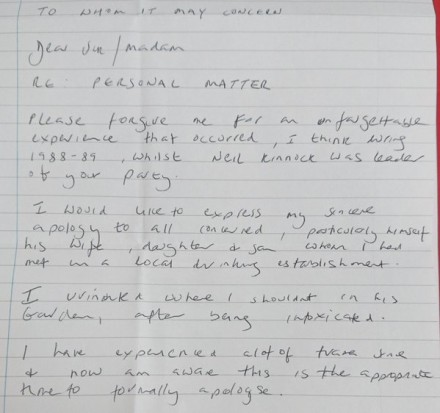 TO WHOM IT MAY CONCERN
Dear Sir/madam
RE: PERSONAL MATTER
Please forgive me for an unforgettable
experience that occurred, I think during
1988-89, whilst Neil Kinnock was leader
of your party.
I would like to express my sincere
apology to all concerned, particularly himself
his wife, daughter & son whom I had
met in a local drinking establishment.
I urinated where I shouldnt in his
Garden, after being intoxicated.
I have experienced alot of since
& now am aware this is the appropriate
time to formally apologise.